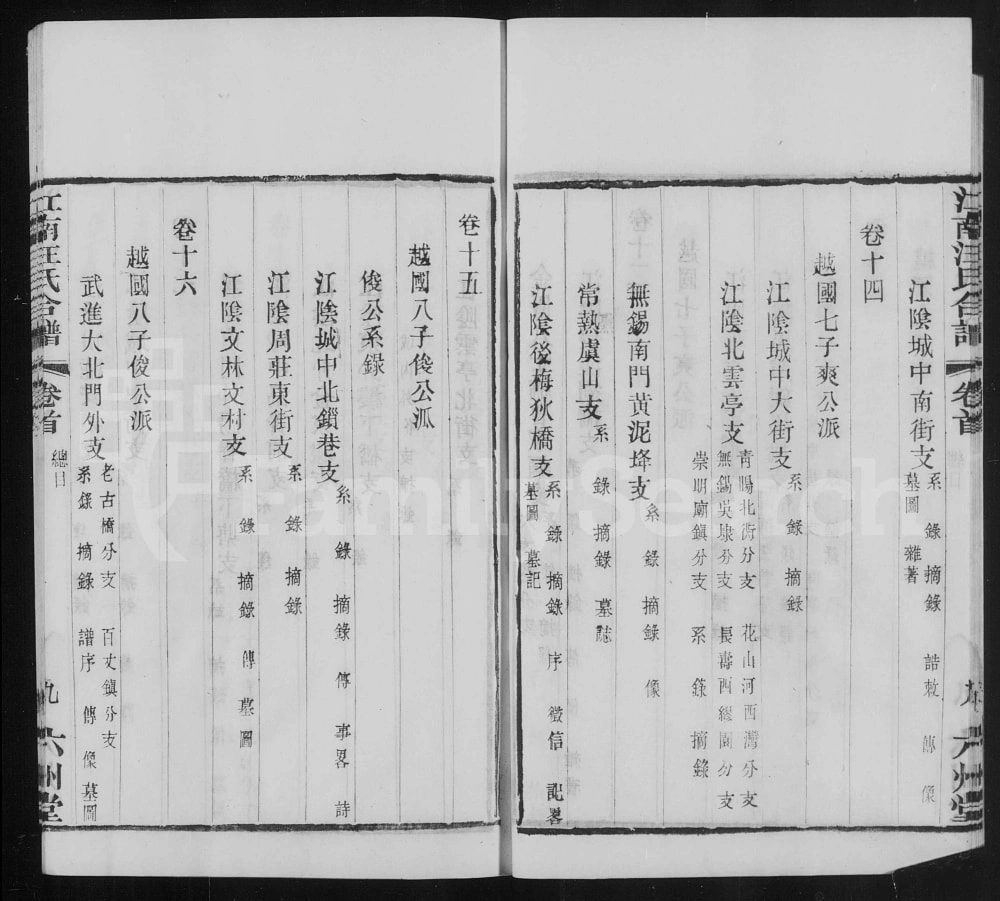 江南汪氏合譜
卷首
六州堂
江陰城中南街支
系錄 摘錄 誥敕 傳 像
墓圖 雜著
卷十四
越國七子爽公派
江陰城中大街支
系錄 摘錄
江陰北雲亭支
青暘北衖分支 花山河西灣分支
無錫吳埭分支 長壽西繆園分支
崇明廟鎮分支 系錄 摘錄
無錫南門黃泥垾支
系錄 摘錄 像
常熟虞山支
系錄 摘錄 墓誌
江陰後梅狄橋支
系錄 摘錄 序 徵信 記畧
墓圖 墓記
卷十五
越國八子俊公派
俊公系錄
江陰城中北鎖巷支
系錄 摘錄 傳 事畧 詩
江陰周莊東街支
系錄 摘錄
江陰文林文村支
系錄 摘錄 傳 墓圖
卷十六
越國八子俊公派
武進大北門外支
老古橋分支 百丈鎮分支
系錄 摘錄 譜序 傳 像 墓圖
江南汪氏合譜
卷首
總目
九
六州堂
FamilySearch